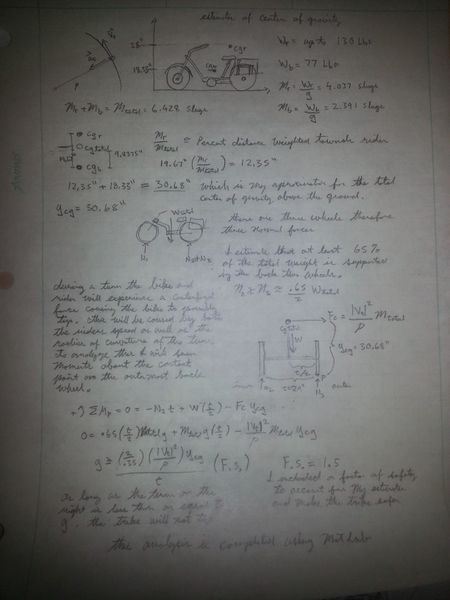 estimate of center of gravity
Wr = up to 130 Lbs
Wb = 77 Lbs
38"
18.33"
cgr
Mr = Wr/g = 4.037 slugs
Mb = Wb/g = 2.391 slugs
Mr + Mb = Mtotal = 6.428 slugs
cgr
cgtotal
cgb
Mr/Mtotal = Percent distance weighted towards rider
19.67" (Mr/Mtotal) = 12.35"
12.35" + 18.33" = 30.68" which is my approximation for the total
center of gravity above the ground.
ycg = 30.68"
Wtotal
N1
there are three wheels therefore
three normal forces
I estimate that at least 65%
of the total weight is supported
by the back two wheels.
N2 ≈ .65/2 Wtotal
during a turn the bike and
rider will experience a centrifugal
force causing the bike to
tip. this will be caused by both
the riders speed as well as the
radius of curvature of the turn
to analyze this I will sum
moments about the contact
point on the outermost back
wheel.
Fc = |V|²/ρ Mtotal
cgtotal
W
ycg = 30.68"
t/2
N2
P
+ ΣMp = 0 = -N2 t + W(t/2) - Fc ycg
g ≥ (2/.35) (|V|²/ρ) ycg / t (F.S.)
F.S. = 1.5
I included a factor of safety
to account for my estimates
and make the trike safer
as long as the term on the
right is less than or equal to
g, the trike will not tip
this analysis is completed using Matlab